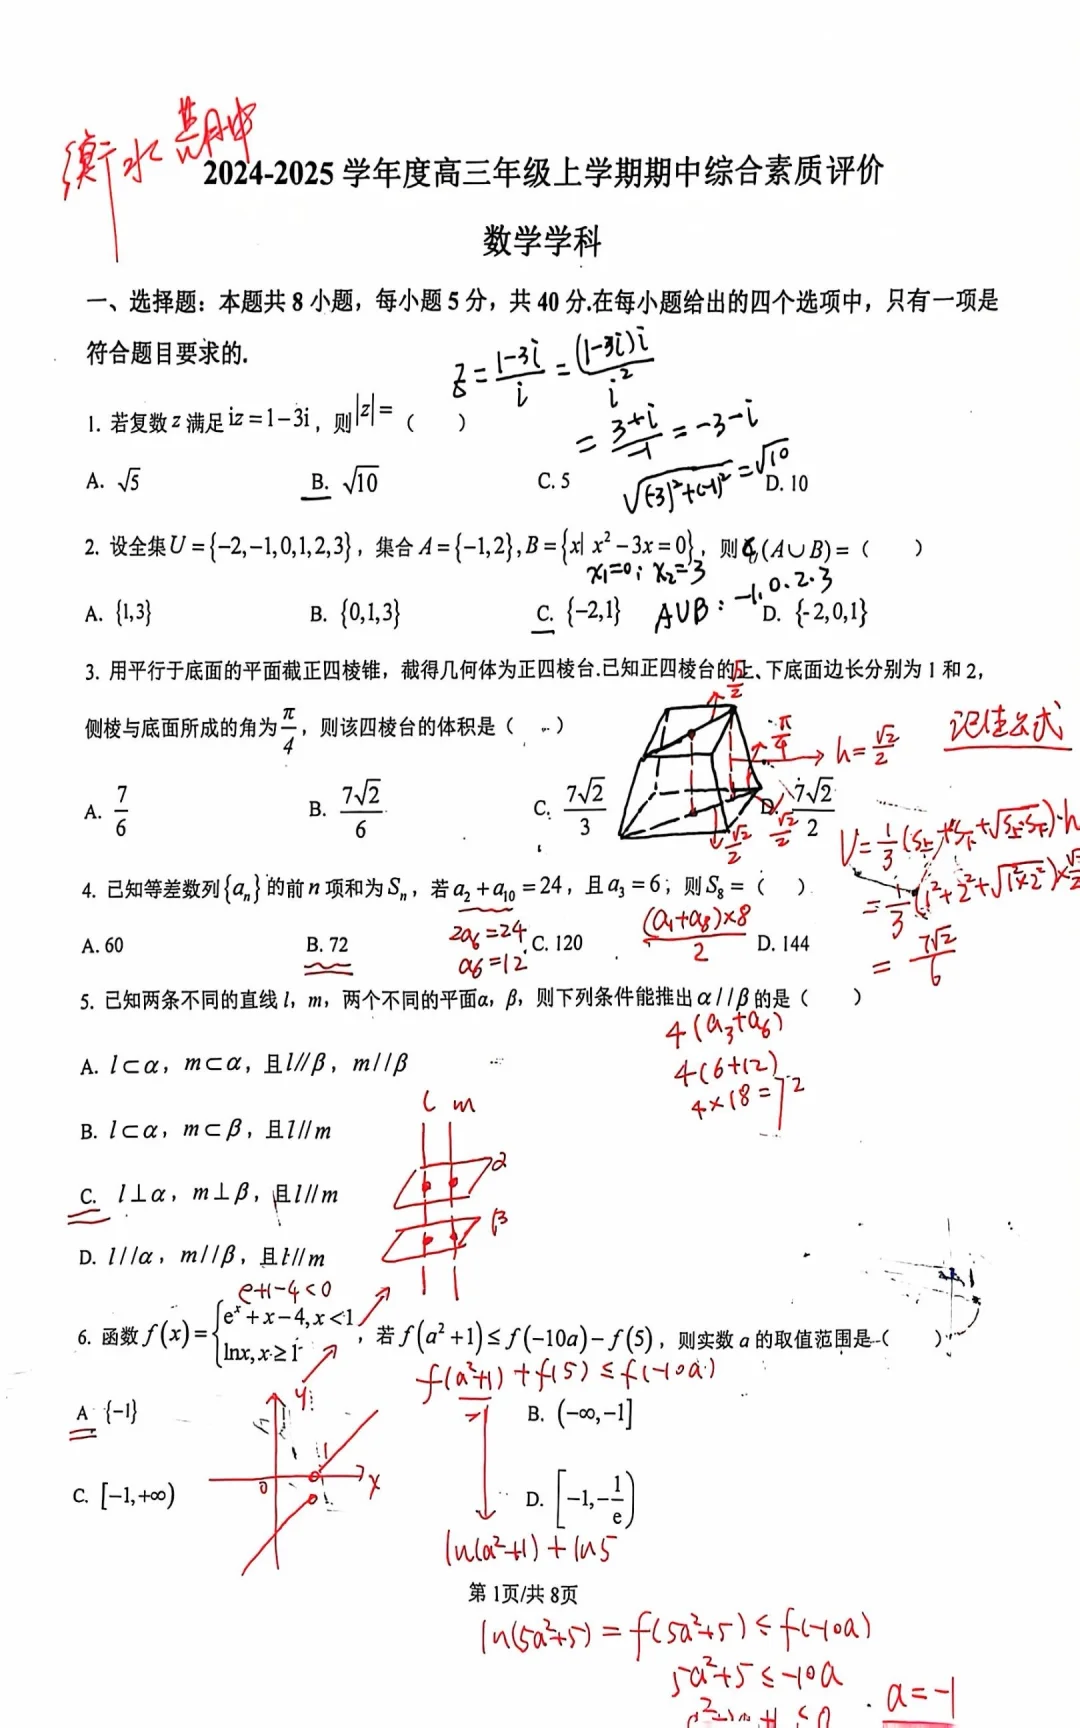 衡水期中
2024-2025 学年度高三年级上学期期中综合素质评价
数学学科
一、选择题：本题共 8 小题，每小题 5 分，共 40 分.在每小题给出的四个选项中，只有一项是
符合题目要求的.
z = (1-3i)/i = (1-3i)i/i²
1. 若复数 z 满足 iz = 1-3i，则 |z| = （　　）
= (3+i)/-1 = -3-i
A. √5　B. √10　C. 5　D. 10
√((-3)²+(-1)²) = √10
2. 设全集 U = {-2,-1,0,1,2,3}，集合 A = {-1,2}, B = {x| x² - 3x = 0}，则 ∁U(A∪B) = （　　）
x₁=0; x₂=3
A. {1,3}　B. {0,1,3}　C. {-2,1}　D. {-2,0,1}
A∪B: -1.0.2.3
3. 用平行于底面的平面截正四棱锥，截得几何体为正四棱台.已知正四棱台的上、下底面边长分别为 1 和 2，
侧棱与底面所成的角为 π/4，则该四棱台的体积是（　　）
√2/2
π/4
h = √2/2
记住公式
A. 7/6　B. 7√2/6　C. 7√2/3　D. 7√2/2
√2/2
√2/2
V = 1/3(S上+S下+√(S上·S下))·h
= 1/3(1²+2²+√(1²×2²))×√2/2
= 7√2/6
4. 已知等差数列{aₙ}的前 n 项和为 Sₙ，若 a₂ + a₁₀ = 24，且 a₃ = 6；则 S₈ = （　　）
2a₆=24
a₆=12
(a₁+a₈)×8/2
A. 60　B. 72　C. 120　D. 144
5. 已知两条不同的直线 l，m，两个不同的平面α，β，则下列条件能推出 α//β 的是（　　）
4(a₃+a₆)
4(6+12)
4×18=72
A. l⊂α，m⊂α，且 l//β，m//β
l m
B. l⊂α，m⊂β，且 l//m
α
C. l⊥α，m⊥β，且 l//m
β
D. l//α，m//β，且 l//m
e+1-4<0
6. 函数 f(x) = {eˣ + x - 4, x < 1
lnx, x ≥ 1，若 f(a²+1) ≤ f(-10a) - f(5)，则实数 a 的取值范围是（　　）
f(a²+1) + f(5) ≤ f(-10a)
A {-1}　B. (-∞,-1]
y
1
0
x
C. [-1,+∞)　D. [-1,-1/e)
ln(a²+1) + ln5
第 1页/共 8页
ln(5a²+5) = f(5a²+5) ≤ f(-10a)
5a²+5 ≤ -10a
a=-1